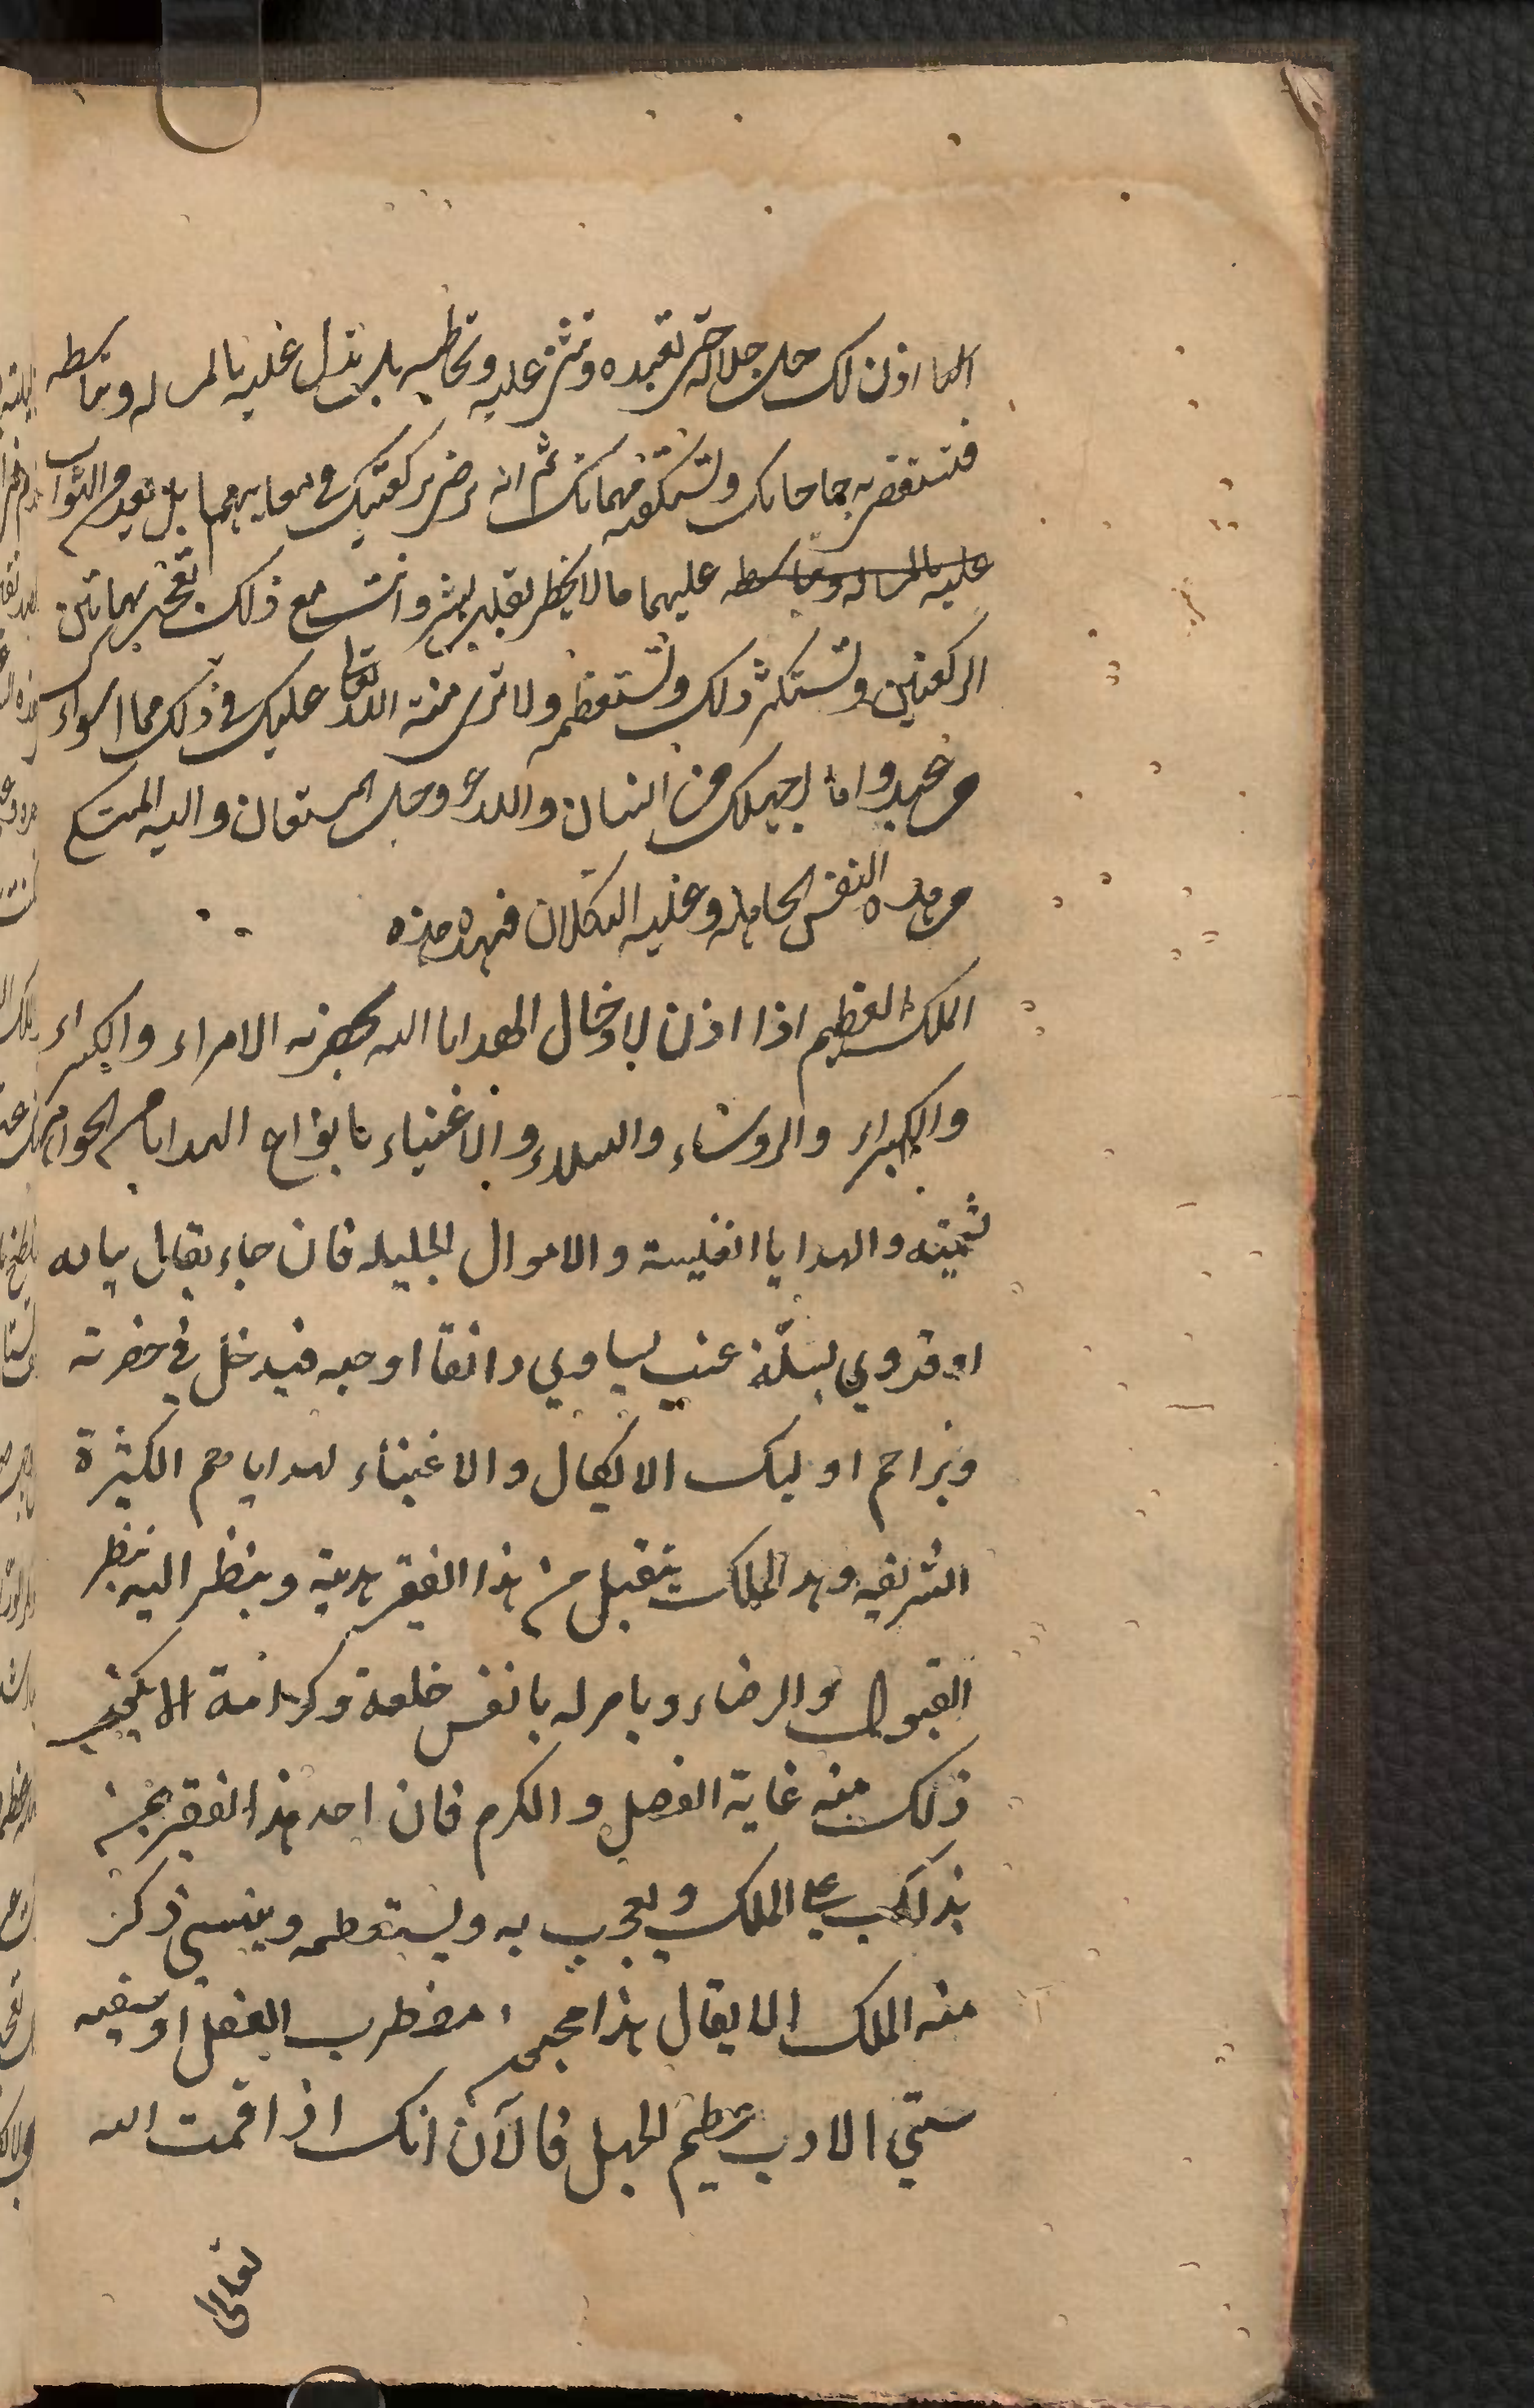 انما اذن لك جل جلاله حتى تعبده وتثني عليه وتخاطبه بل تذل عليه بالمساله وتباسطه
فتستقضيه حاجاتك وتستكفيه مهماتك ثم انه يرضى ركعتيك في معايبهما بل تعد من الثواب
عليه بالمساله وتباسطه عليهما ما لا يخطر بقلب بشر وانت مع ذلك تعجب بهاتين
الركعتين وتستكثر ذلك وتستعظمه ولا ترى منة الله تعالى عليك في ذلك مما اسواك
من عبد واما اجهلك من انسان والله عز وجل المستعان واليه المشتكى
من هذه النفس الجاهله وعليه التكلان فهذه هذه
الملك العظيم اذا اذن لادخال الهدايا اليه بحضرته الامراء والكبراء
والكبراء والروساء والنبلاء والاغنياء بانواع الهدايا من الجواهر
ثمينه والهدايا انفيسة والاموال الجليله فان جاء بقال بباقه
او قروي بسلة عنب يساوي دانقا او حبه فيدخل في حضرته
ويزاحم اوليك الاكمال والاغنياء لهداياهم الكثيرة
الشريفه وهذ الملك يتقبل من هذا الفقير هديته وينظر اليه بنظر
القبول والرضاء ويامر له بانفس خلعة وكرامة الا يكون
ذلك منه غاية الفضل والكرم فان احد هذا الفقير يمن
بذلك على الملك ويعجب به ويستعظمه وينسى ذكر
منه الملك الا يقال هذا مجنون مضطرب العقل او سفيه
سيئ الادب عظيم الجهل فالآن انك اذا قمت الله
تعالى